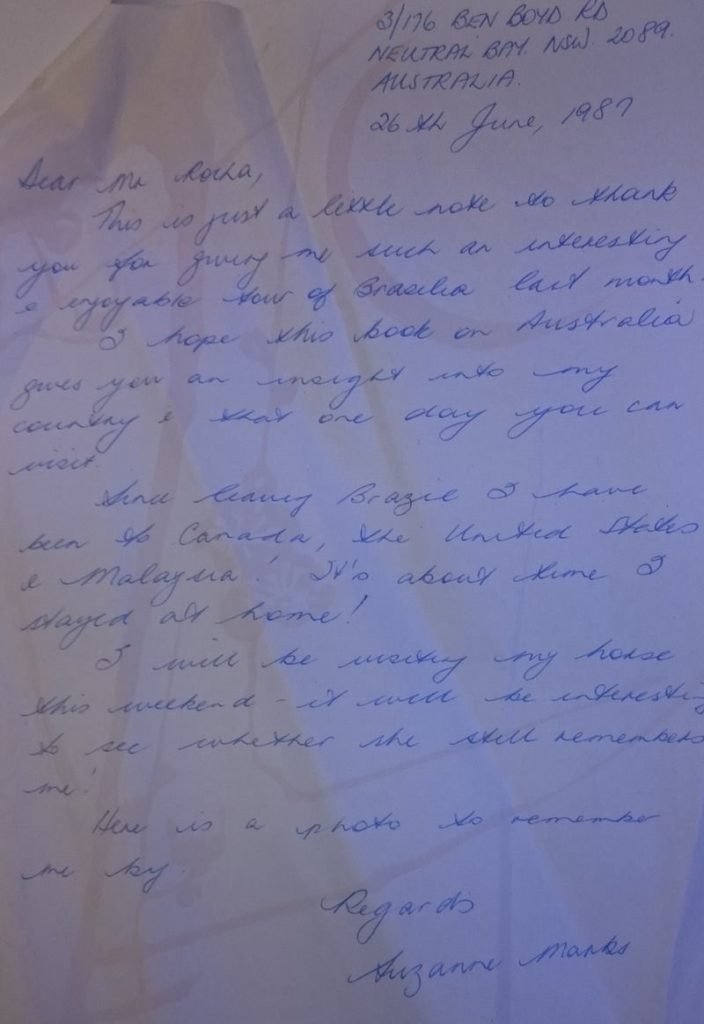 3/176 BEN BOYD RD
NEUTRAL BAY. NSW. 2089.
AUSTRALIA.
26th June, 1987
Dear Mr Rocha,
This is just a little note to thank
you for giving me such an interesting
& enjoyable tour of Brasilia last month.
I hope this book on Australia
gives you an insight into my
country & that one day you can
visit.
Since leaving Brazil I have
been to Canada, the United States
& Malaysia! It's about time I
stayed at home!
I will be visiting my horse
this weekend - it will be interesting
to see whether she still remembers
me!
Here is a photo to remember
me by.
Regards
Suzanne Marks